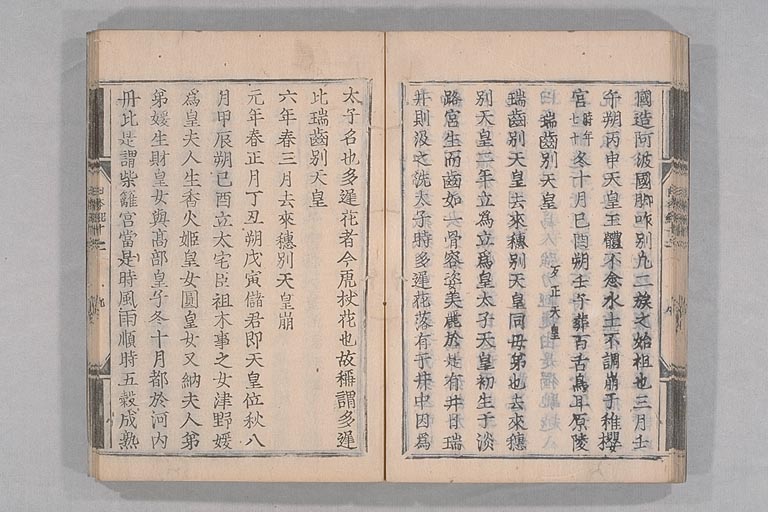 國造阿波國脚咋別凡三族之始祖也三月壬
午朔丙申天皇玉體不悆水土不調崩于稚櫻
宮時年七十冬十月己酉朔壬子葬百舌鳥耳原陵
瑞齒別天皇 反正天皇
瑞齒別天皇去來穗別天皇同母弟也去來穗
別天皇二年立爲立爲皇太子天皇初生于淡
路宮生而齒如一骨容姿美麗於是有井曰瑞
井則汲之洗太子時多遲花落有于井中因爲
太子名也多遲花者今虎杖花也故稱謂多遲
比瑞齒別天皇
六年春三月去來穗別天皇崩
元年春正月丁丑朔戊寅儲君即天皇位秋八
月甲辰朔己酉立太宅臣祖木事之女津野媛
爲皇夫人生香火姬皇女圓皇女又納夫人弟
弟媛生財皇女與高部皇子冬十月都於河內
丹比是謂柴籬宮當是時風雨順時五穀成熟